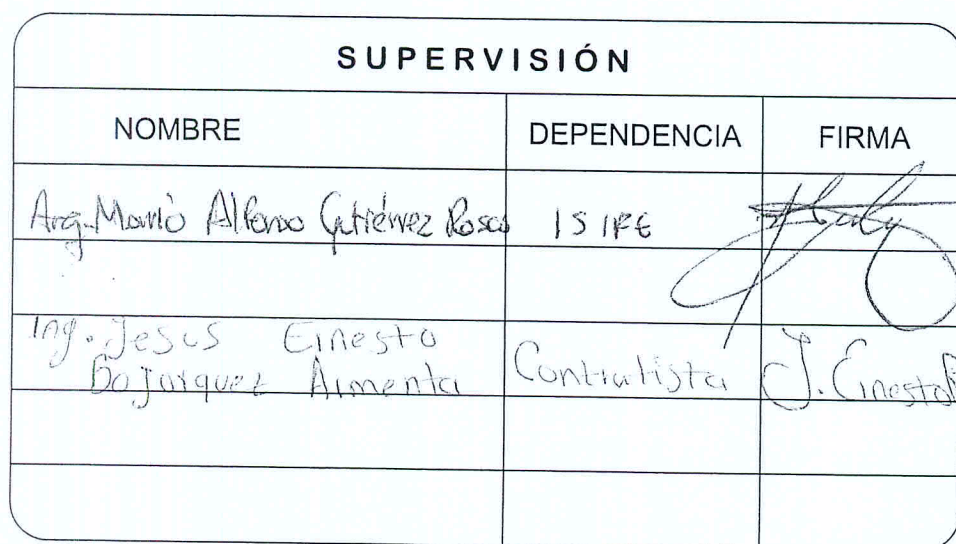 SUPERVISIÓN
NOMBRE DEPENDENCIA FIRMA
Arq. Mario Alfonso Gutiérrez Rosas ISIFE
Ing. Jesus Ernesto
Bojorquez Armenta Contratista J. Ernesto